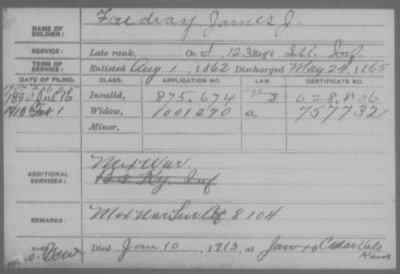 NAME OF SOLDIER: Foedray James J.
SERVICE: Late rank, Co. I, 123 Reg't Ill. Inf.
TERM OF SERVICE: Enlisted Aug 1, 1862 Discharged May 24, 1865
DATE OF FILING. CLASS. APPLICATION NO. LAW. CERTIFICATE NO.
1892 16 Invalid, 875.674 628.806
1913 1 Widow, 1001270 a 757732
Minor,
ADDITIONAL SERVICES: Mex War.
Ky. Inf
REMARKS: Mex War Sur Ctf 8104
Died Jan 10, 1913, at Cedar Vale
Kans